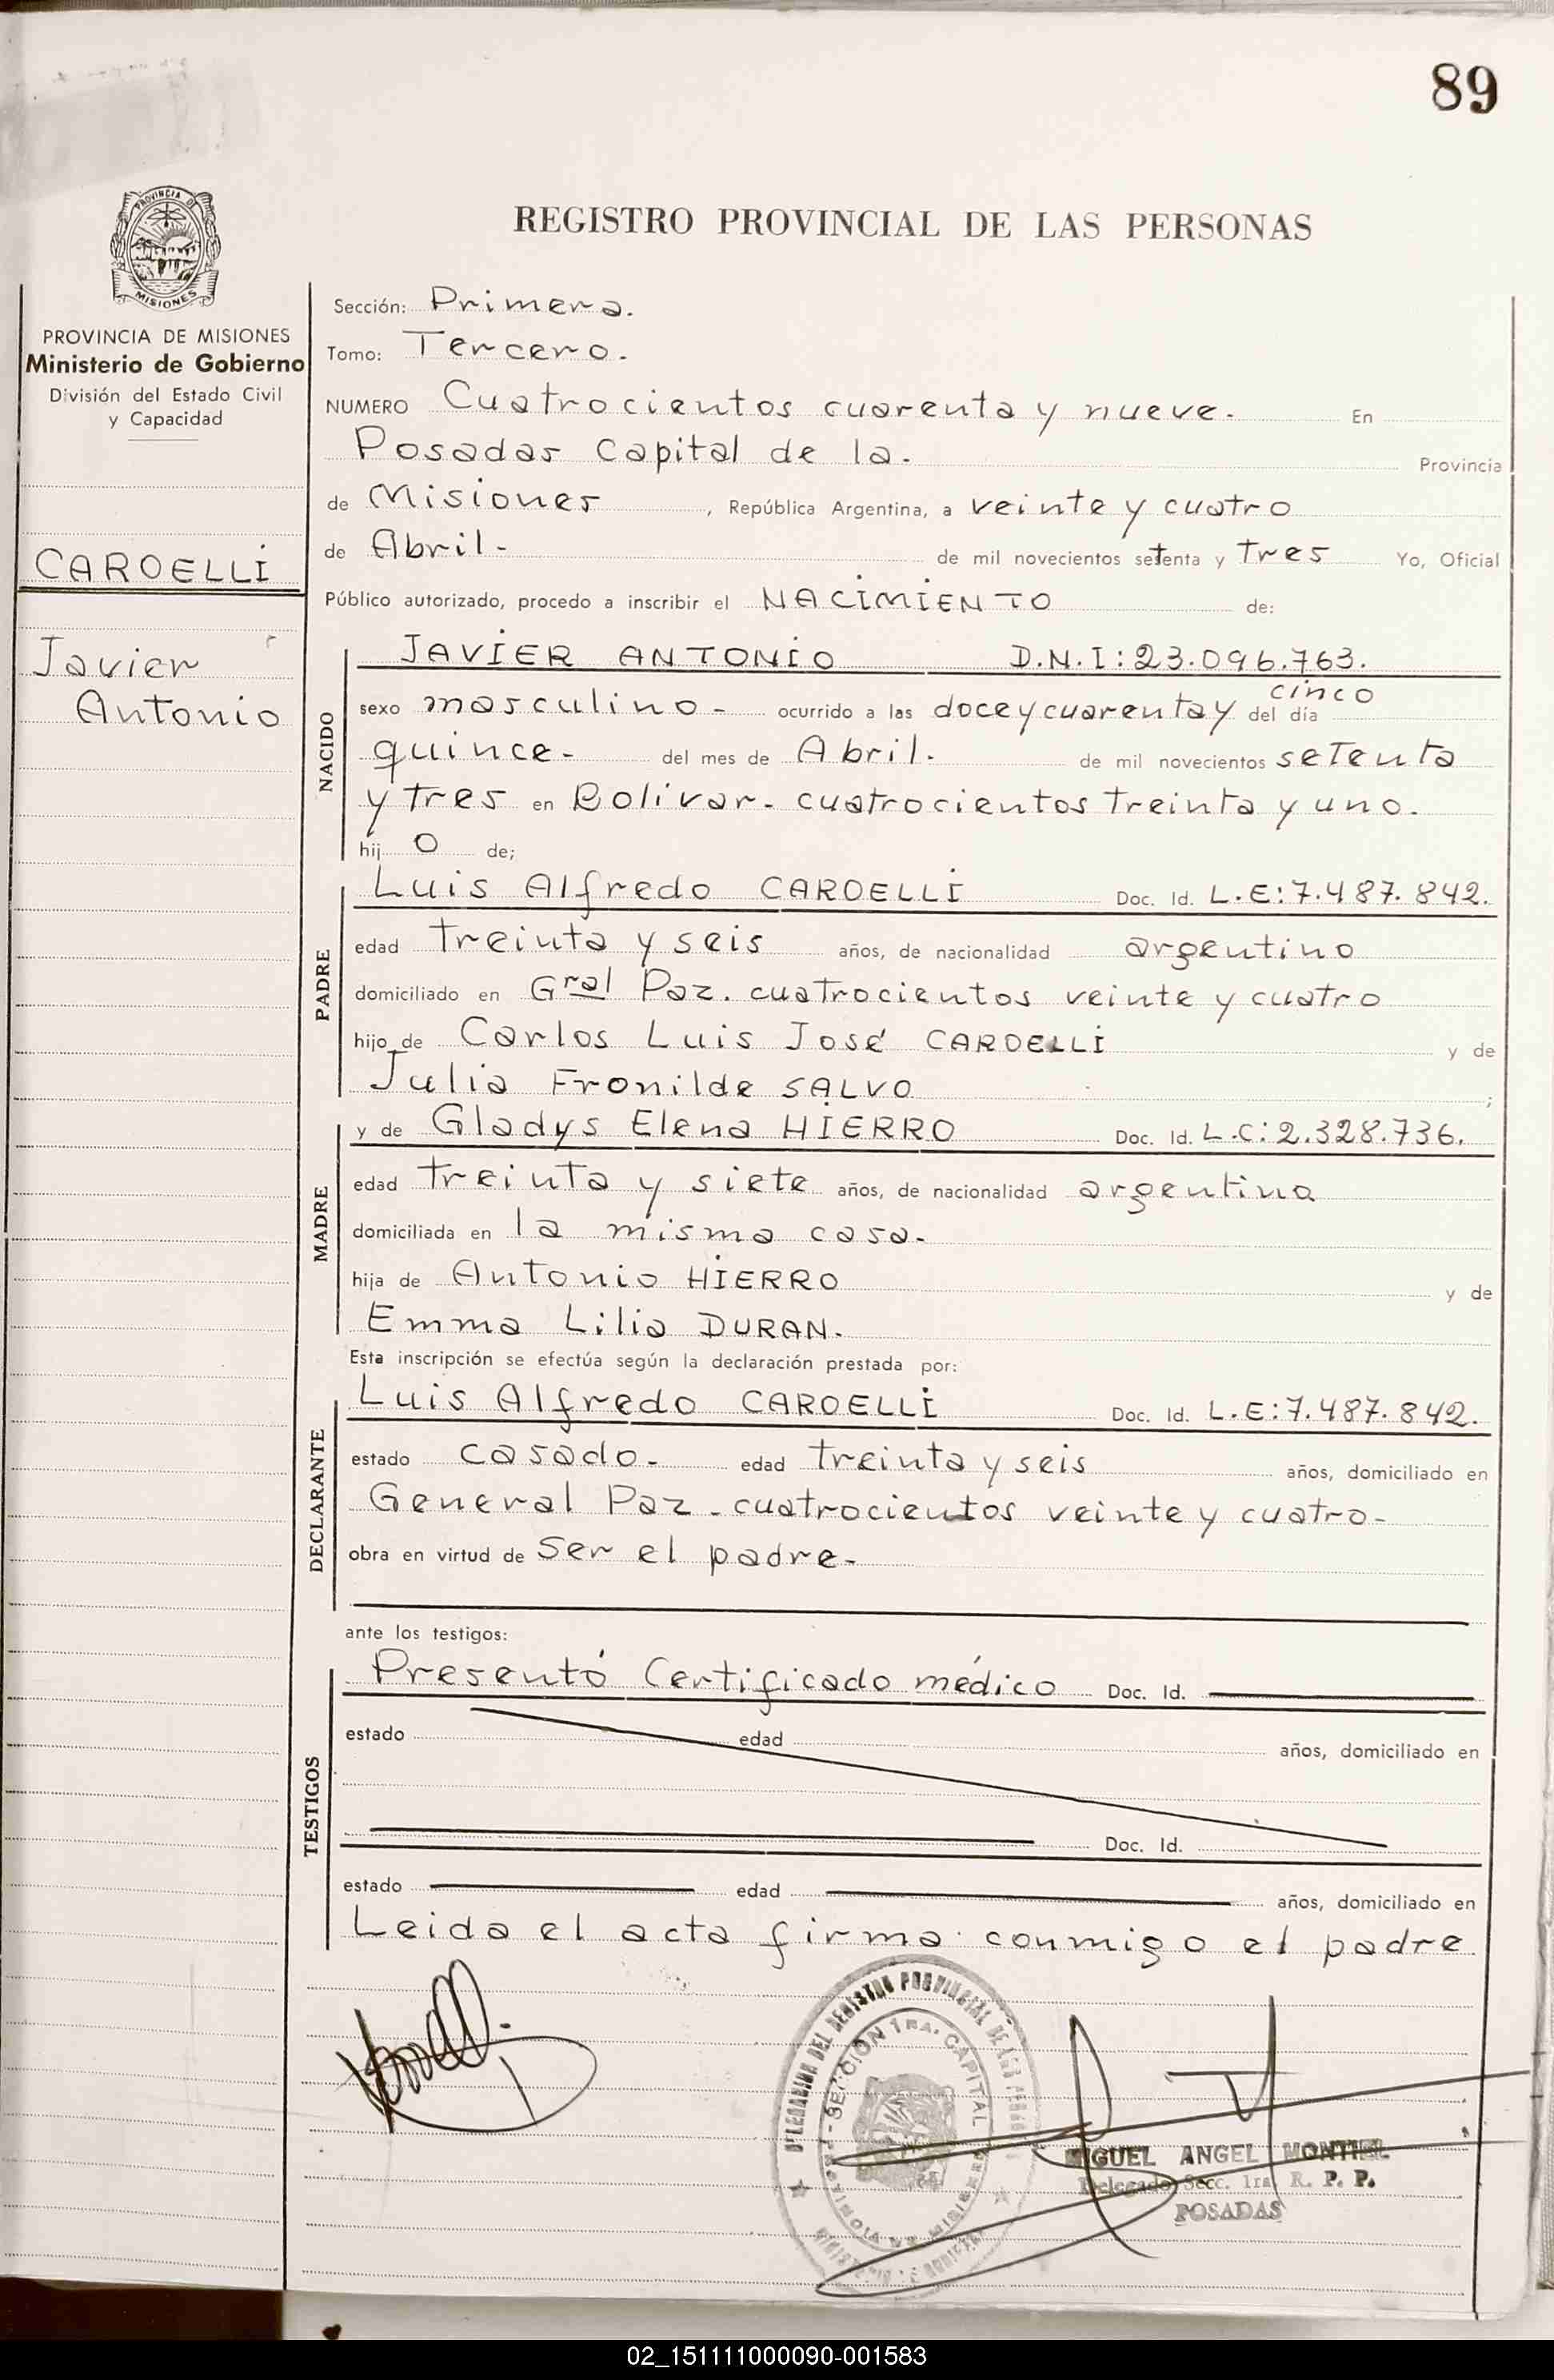 89
REGISTRO PROVINCIAL DE LAS PERSONAS
PROVINCIA DE MISIONES
PROVINCIA DE MISIONES
Ministerio de Gobierno
División del Estado Civil
y Capacidad
CARDELLI
Javier
Antonio
Sección: Primera.
Tomo: Tercero.
NUMERO Cuatrocientos cuarenta y nueve. En
Posadas Capital de la. Provincia
de Misiones , República Argentina, a veinte y cuatro
de Abril - de mil novecientos setenta y tres Yo, Oficial
Público autorizado, procedo a inscribir el NACIMIENTO de:
NACIDO
JAVIER ANTONIO D.N.I: 23.096.763.
sexo masculino - ocurrido a las doce y cuarenta y cinco del día
quince - del mes de Abril. de mil novecientos setenta
y tres en Bolivar - cuatrocientos treinta y uno.
hij o de;
PADRE
Luis Alfredo CARDELLI Doc. Id. L.E: 7.487.842.
edad treinta y seis años, de nacionalidad argentino
domiciliado en Gral Paz. cuatrocientos veinte y cuatro
hijo de Carlos Luis José CARDELLI y de
Julia Fronilde SALVO ;
MADRE
y de Gladys Elena HIERRO Doc. Id. L.C: 2.328.736.
edad treinta y siete años, de nacionalidad argentina
domiciliada en la misma casa.
hija de Antonio HIERRO y de
Emma Lilia DURAN.
Esta inscripción se efectúa según la declaración prestada por:
DECLARANTE
Luis Alfredo CARDELLI Doc. Id. L.E: 7.487.842.
estado casado - edad treinta y seis años, domiciliado en
General Paz - cuatrocientos veinte y cuatro -
obra en virtud de Ser el padre -
ante los testigos:
TESTIGOS
Presentó Certificado médico Doc. Id.
estado edad años, domiciliado en
Doc. Id.
estado edad años, domiciliado en
Leida el acta firma conmigo el padre
DELEGACION DEL REGISTRO PROVINCIAL DE LAS PERSONAS
SECCION 1RA. CAPITAL
PROVINCIA DE MISIONES
MIGUEL ANGEL MONTIEL
Delegado Secc. 1ra R. P. P.
POSADAS
02_151111000090-001583